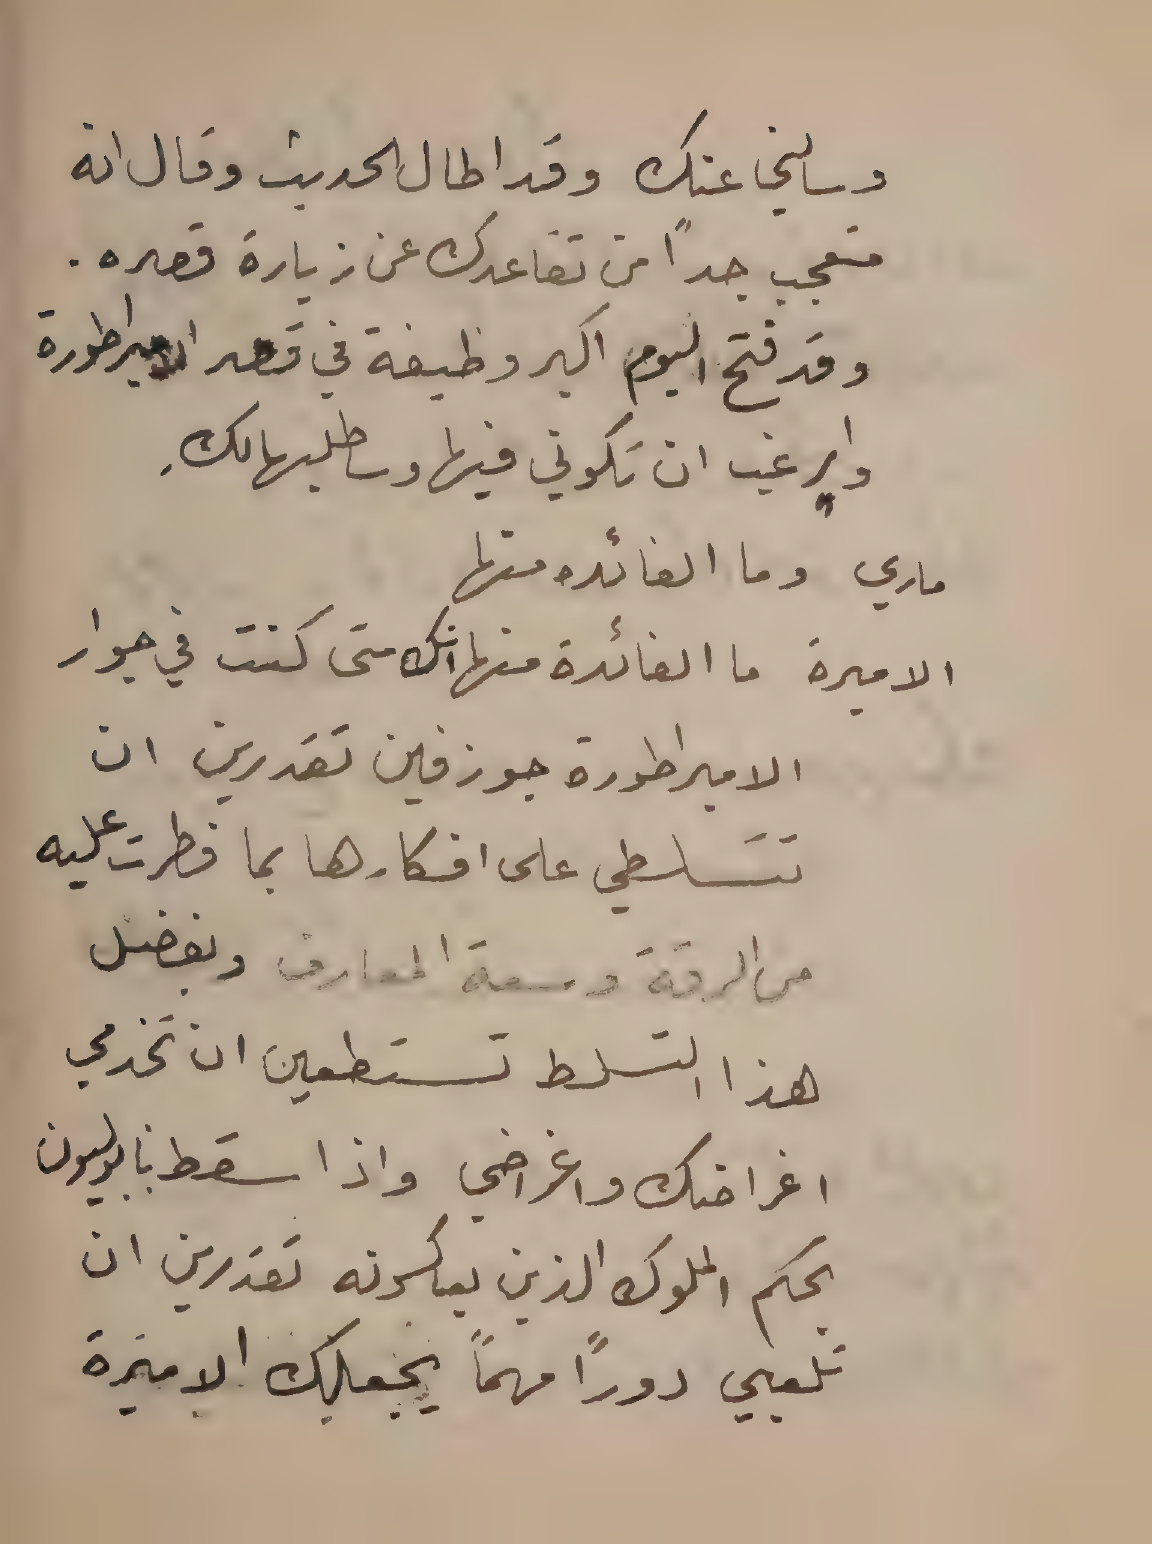 وسالني عنك وقد اطال الحديث وقال انه
متعجب جدًا من تقاعدك عن زيارة قصره .
وقد فتح اليوم اكبر وظيفة في قصر الامبراطورة
وارغب ان تكوني فيها وساطلبها لك .
ماري وما الفائده منها
الاميرة ما الفائدة منها انك متى كنت في جوار
الامبراطورة جوزفين تقدرين ان
تتسلطي على افكارها بما فطرت عليه
من الرقة وسعة المعارف وبفضل
هذا التسلط تستطعين ان تخدمي
اغراضك واغراضي واذا سقط نابوليون
بحكم الملوك الذين يعاكسونه تقدرين ان
تلعبي دورًا مهمًا يجعلك الاميرة